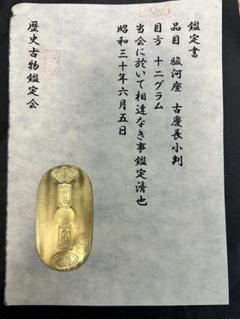 鑑定書
品目 駿河座 古慶長小判
目方 十二グラム
当会に於いて相違なき事鑑定済也
昭和三十年六月五日
歴史古物鑑定会